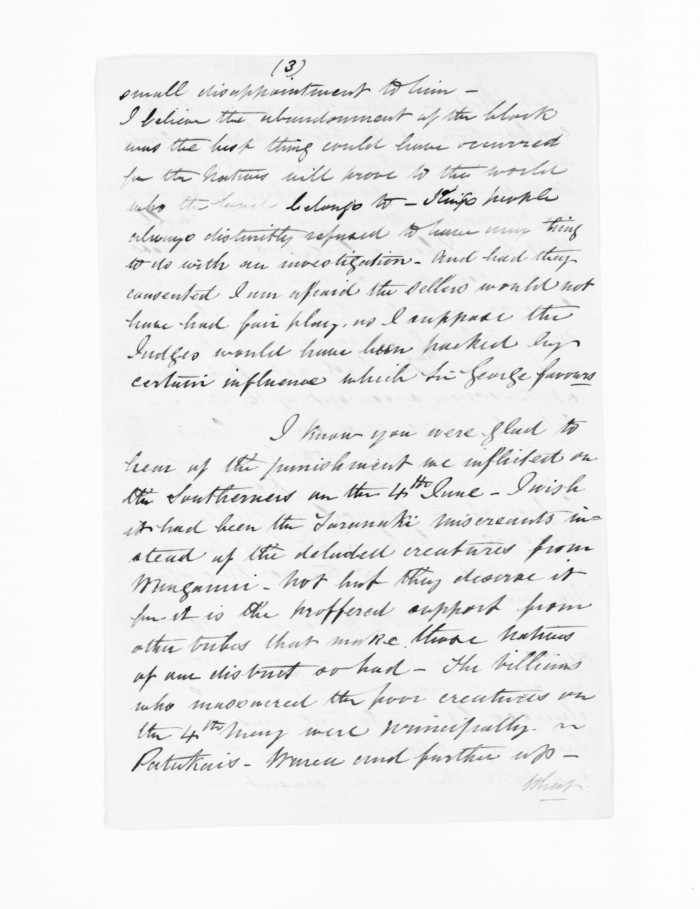 (3)
small disappointment to him -
I believe the abandonment of the block
was the best thing could have occurred
for the Natives will prove to the world
who the land belongs to - Kings people
always distinctly refused to have any thing
to do with an investigation - And had they
consented I am afraid the sellers would not
have had fair play, as I suppose the
Judges would have been packed by
certain influence which Sir George favours
I know you were glad to
hear of the punishment we inflicted on
the Southerners on the 4th June - I wish
it had been the Taranaki miscreants in-
stead of the deluded creatures from
Wanganui - Not but they deserve it
for it is the proffered support from
other tribes that make those Natives
of our district so bad - The villians
who massacred the poor creatures on
the 4th May were principally
Patukais - Warea and further up -